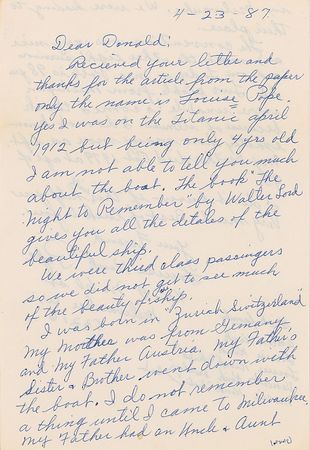 4-23-87
Dear Donald;
Recieved your letter and
thanks for the article from the paper
only the name is Louise Pope.
Yes I was on the Titanic april
1912 but being only 4 yrs old
I am not able to tell you much
about the boat. The book "The
Night to Remember" by Walter Lord
gives you all the detales of the
beautiful ship.
We were third class passingers
so we did not get to see much
of the beauty of ship.
I was born in "Zurich Switzerland"
My Mother was from Gemany
and My Father Austria. My Father's
Sister & Brother went down with
the boat. I do not remember
a thing until I came to Milwaukee.
My Father had an Uncle & Aunt